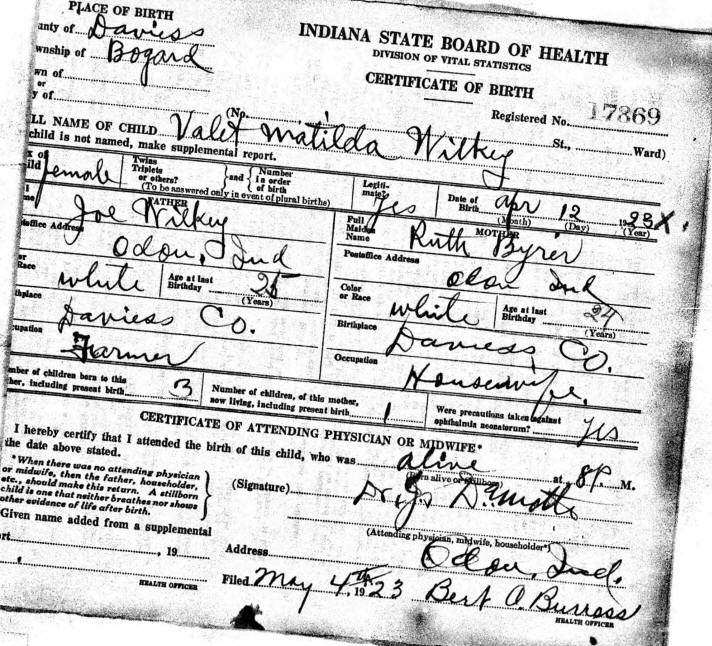 PLACE OF BIRTH
unty of Daviess
wnship of Bogard
wn of
or
y of
INDIANA STATE BOARD OF HEALTH
DIVISION OF VITAL STATISTICS
CERTIFICATE OF BIRTH
Registered No. 17869
(No. St., Ward)
LL NAME OF CHILD Valet Matilda Wilkey
child is not named, make supplemental report.
x of
ild female
Twins
Triplets
or others?
and
Number
in order
of birth
(To be answered only in event of plural births)
Legiti-
mate? Yes
Date of
Birth Apr 12 1923 X
(Month) (Day) (Year)
FATHER
Joe Wilkey
stoffice Address
Odon, Ind
or
Race white
Age at last
Birthday 25
(Years)
thplace
Daviess Co.
upation
Farmer
MOTHER
Full
Maiden
Name Ruth Byrer
Postoffice Address
Odon Ind
Color
or Race white
Age at last
Birthday 24
(Years)
Birthplace
Daviess Co.
Occupation
Housewife.
mber of children born to this
her, including present birth 3
Number of children, of this mother,
now living, including present birth 1
Were precautions taken against
ophthalmia neonatorum? yes
CERTIFICATE OF ATTENDING PHYSICIAN OR MIDWIFE*
I hereby certify that I attended the birth of this child, who was alive at 8P. M.
the date above stated.
(Born alive or stillborn)
*When there was no attending physician
or midwife, then the father, householder,
etc., should make this return. A stillborn
child is one that neither breathes nor shows
other evidence of life after birth.
(Signature)
(Attending physician, midwife, householder*)
Given name added from a supplemental
rt , 19
Address Odon, Ind.
HEALTH OFFICER
Filed May 4th, 1923 Bert O. Burress
HEALTH OFFICER